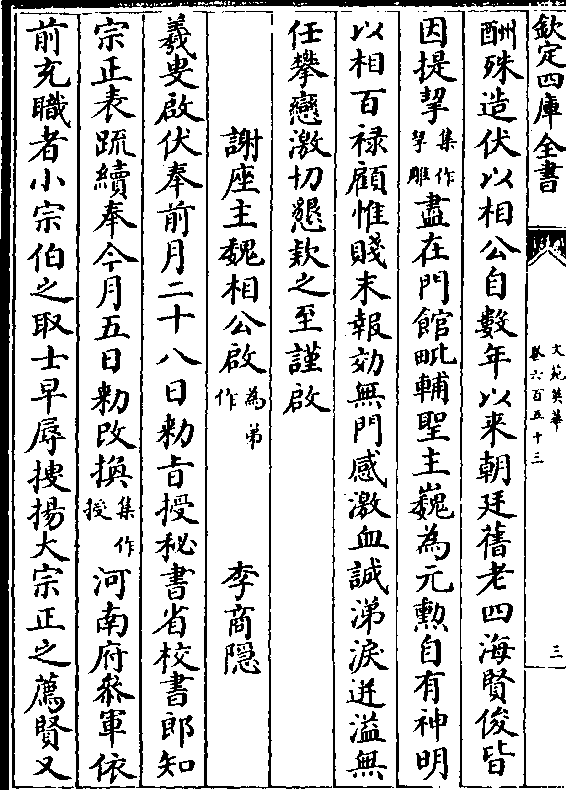 欽定四庫全書
文苑英華
卷六百五十三
三
酬殊造伏以相公自數年以来朝廷舊老四海賢俊皆
因提挈集作孚雕盡在門館毗輔聖主巍為元勲自有神明
以相百禄顧惟賤末報効無門感激血誠涕淚迸溢無
任攀戀激切懇欵之至謹啟
謝座主魏相公啟為弟作
李商隠
羲叟啟伏奉前月二十八日勅㫖授秘書省校書郎知
宗正表䟽續奉今月五日勅改換集作授河南府叅軍依
前充職者小宗伯之取士早辱搜揚大宗正之薦賢又